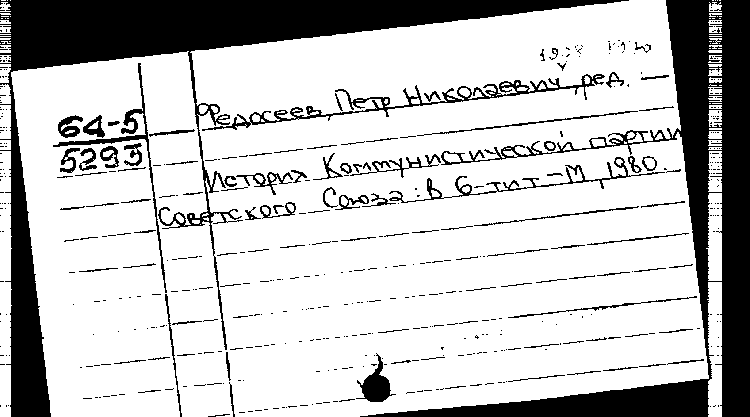 Федосеев, Петр Николаевич, ред. —
64-5
5295
История Коммунистической партии
Советского Союза: в 6-ти т-М, 1980.